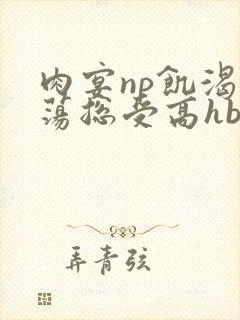 肉宴np飢渴
蕩總受高hb
弄青弦